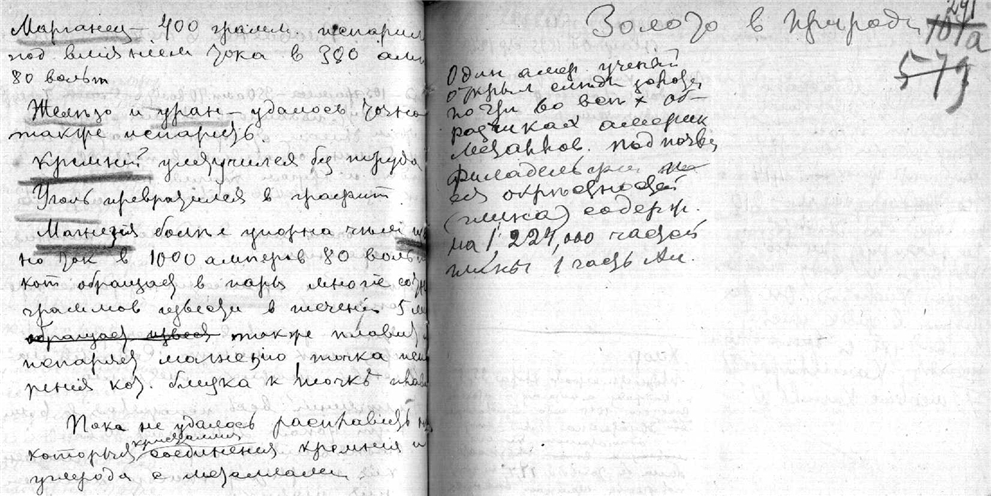 Марганец — 400 грамм. испарил
под влиянием тока в 380 амп
80 вольт
Желѣзо и уран — удалось точно
также испарить.
Кремній улетучился без труда
Уголь превратился в графит.
Магнезія болѣе упорна чѣм из
но ток в 1000 амперов 80 воль
кот обращает в пары многіе сот
граммов извести в теченіи 5 м
обращает извест также плавит
испаряет магнезію точка испа
ренія кот. близка к точкѣ плав
Пока не удалось расплавить нѣ
кристаллич
которыя соединения кремния и
углерода с металлами
Золото в природѣ
291
101а
573
Один амер. ученый
открыл слѣды
почти во всѣх об
разчиках америк
металлов. под почвы
Филадельфии
ея окрестностей
(глина) содерж.
на 1,224,000 частей
глины 1 часть Au.